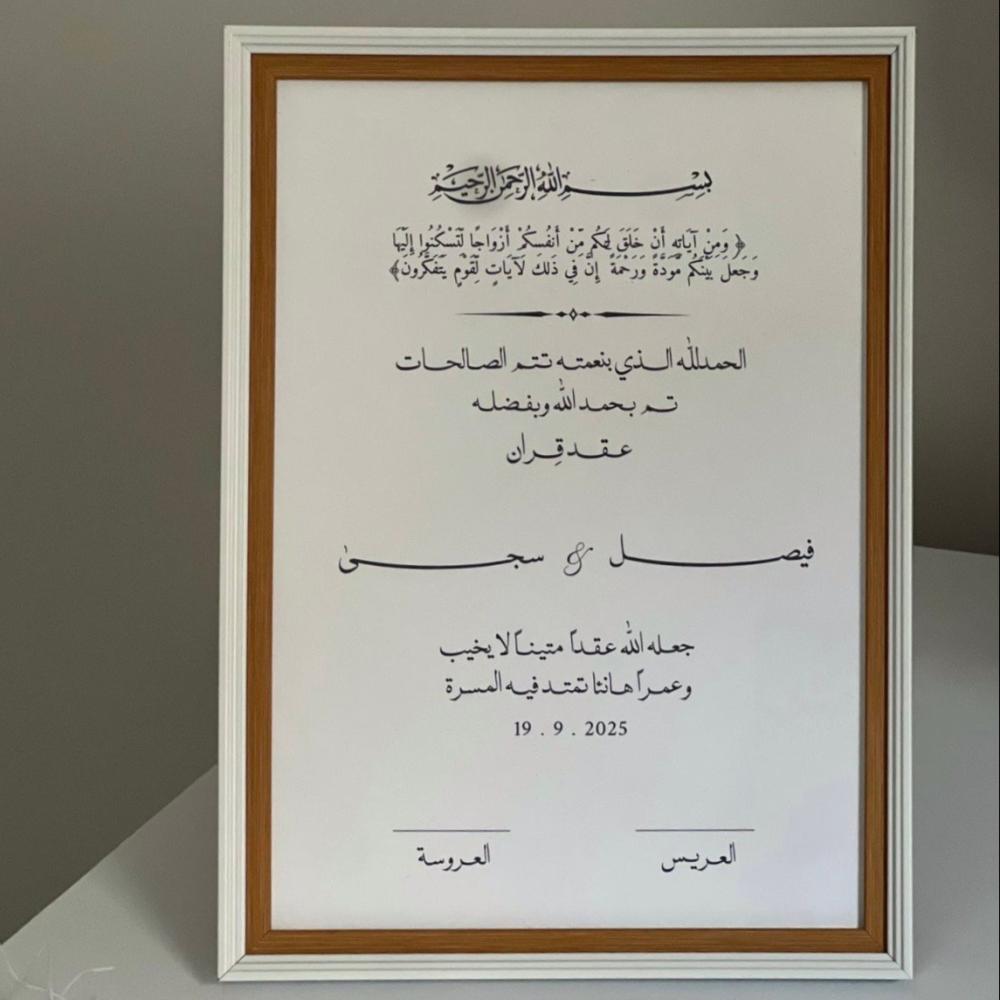 بسم الله الرحمن الرحيم
﴿ وَمِنْ آيَاتِهِ أَنْ خَلَقَ لَكُم مِّنْ أَنفُسِكُمْ أَزْوَاجًا لِّتَسْكُنُوا إِلَيْهَا
وَجَعَلَ بَيْنَكُم مَّوَدَّةً وَرَحْمَةً إِنَّ فِي ذَلِكَ لَآيَاتٍ لِّقَوْمٍ يَتَفَكَّرُونَ﴾
الحمدلله الذي بنعمته تتم الصالحات
تم بحمد الله وبفضله
عقد قِران
فيصل & سجىٰ
جعله الله عقداً متيناً لا يخيب
وعمراً هانئا تمتد فيه المسرة
19 . 9 . 2025
العريس العروسة